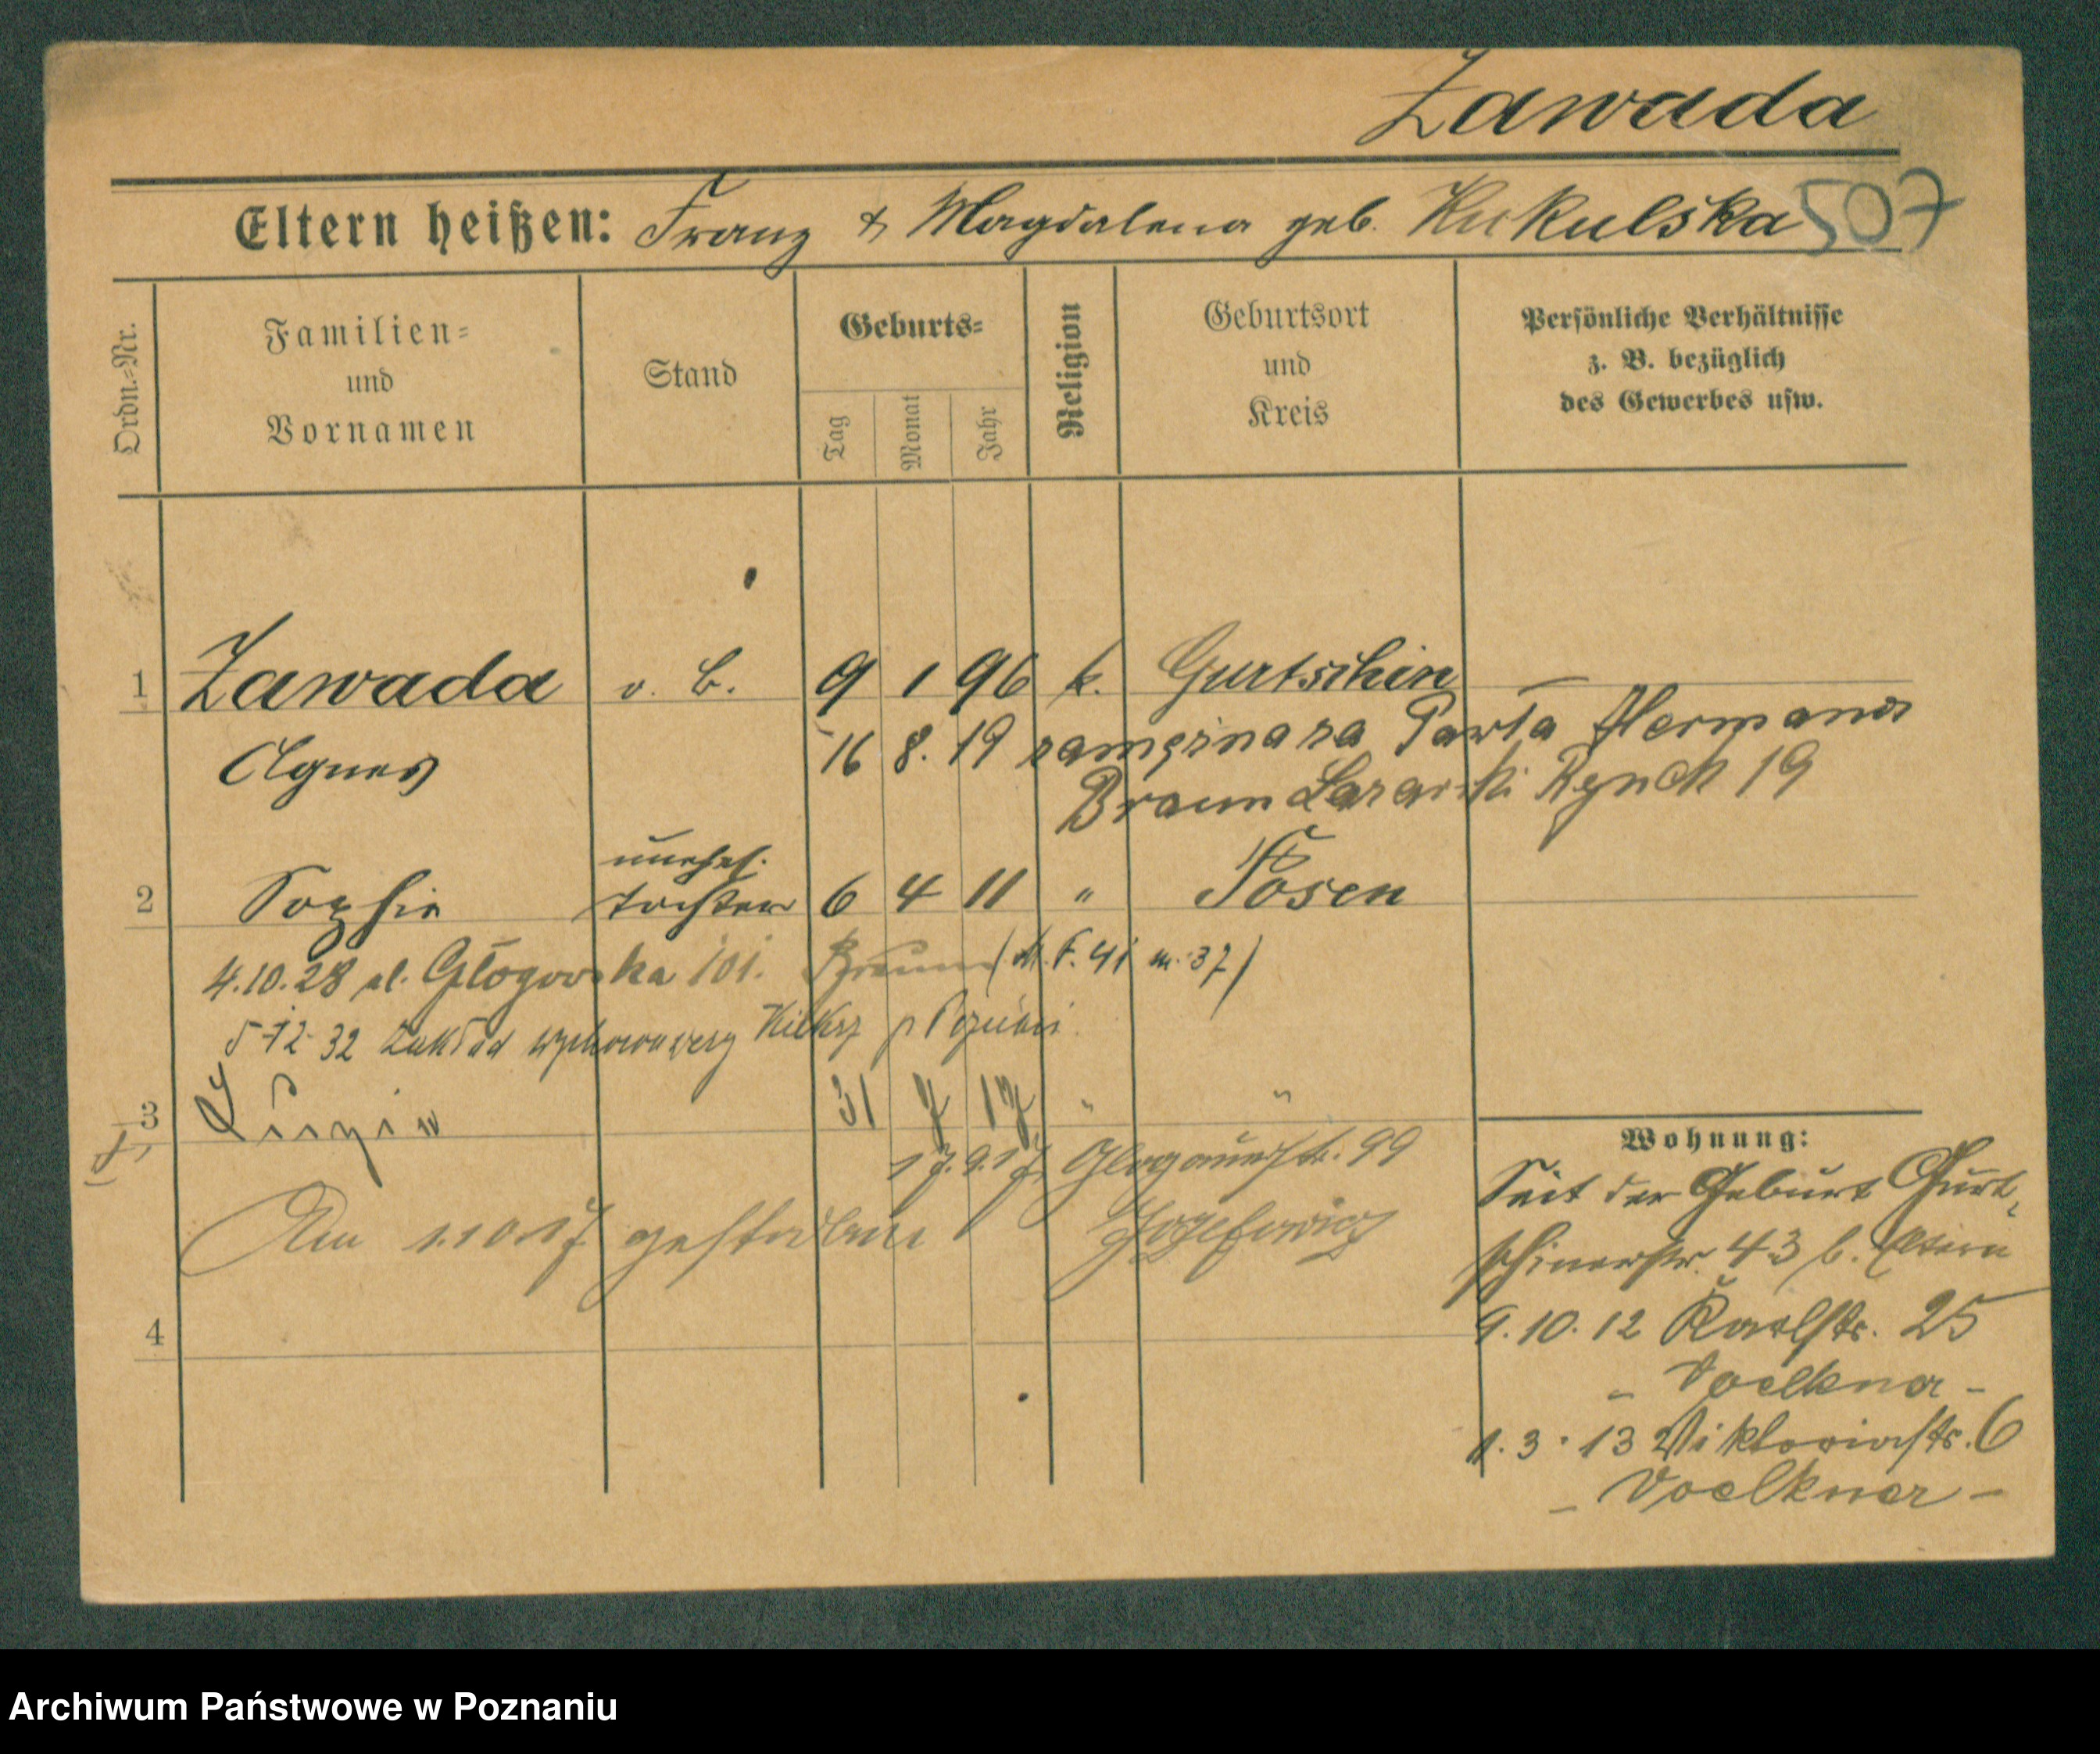 Zawada
Eltern heißen: Franz & Magdalena geb. Kukulska 507
Ordn.-Nr.
Familien-
und
Vornamen
Stand
Geburts-
Tag
Monat
Jahr
Religion
Geburtsort
und
Kreis
Persönliche Verhältnisse
z. B. bezüglich
des Gewerbes usw.
1 Zawada o. B. 9 1 96 k. Gurtschin
Agnes 16 8. 19 Pawła Hermana
Braun Łazarski Rynek 19
unehel.
2 Sophie Tochter 6 4 11 " Posen
4.10.28 ul. Głogowska 101. Braun (M. F. 41 m. 37)
5-12-32 Zakład wychowawczy p Poznań
3 Luzie 31 7 17 " "
17.9.17 Glogauerstr. 99
Am 1.10.17 gestorben Jozefowicz
4
Wohnung:
Seit der Geburt Gurt-
schinerstr. 43 b. Eltern
9. 10. 12 Karlstr. 25
- Voelkner -
1. 3. 13 Viktoriastr. 6
- Voelkner -
Archiwum Państwowe w Poznaniu